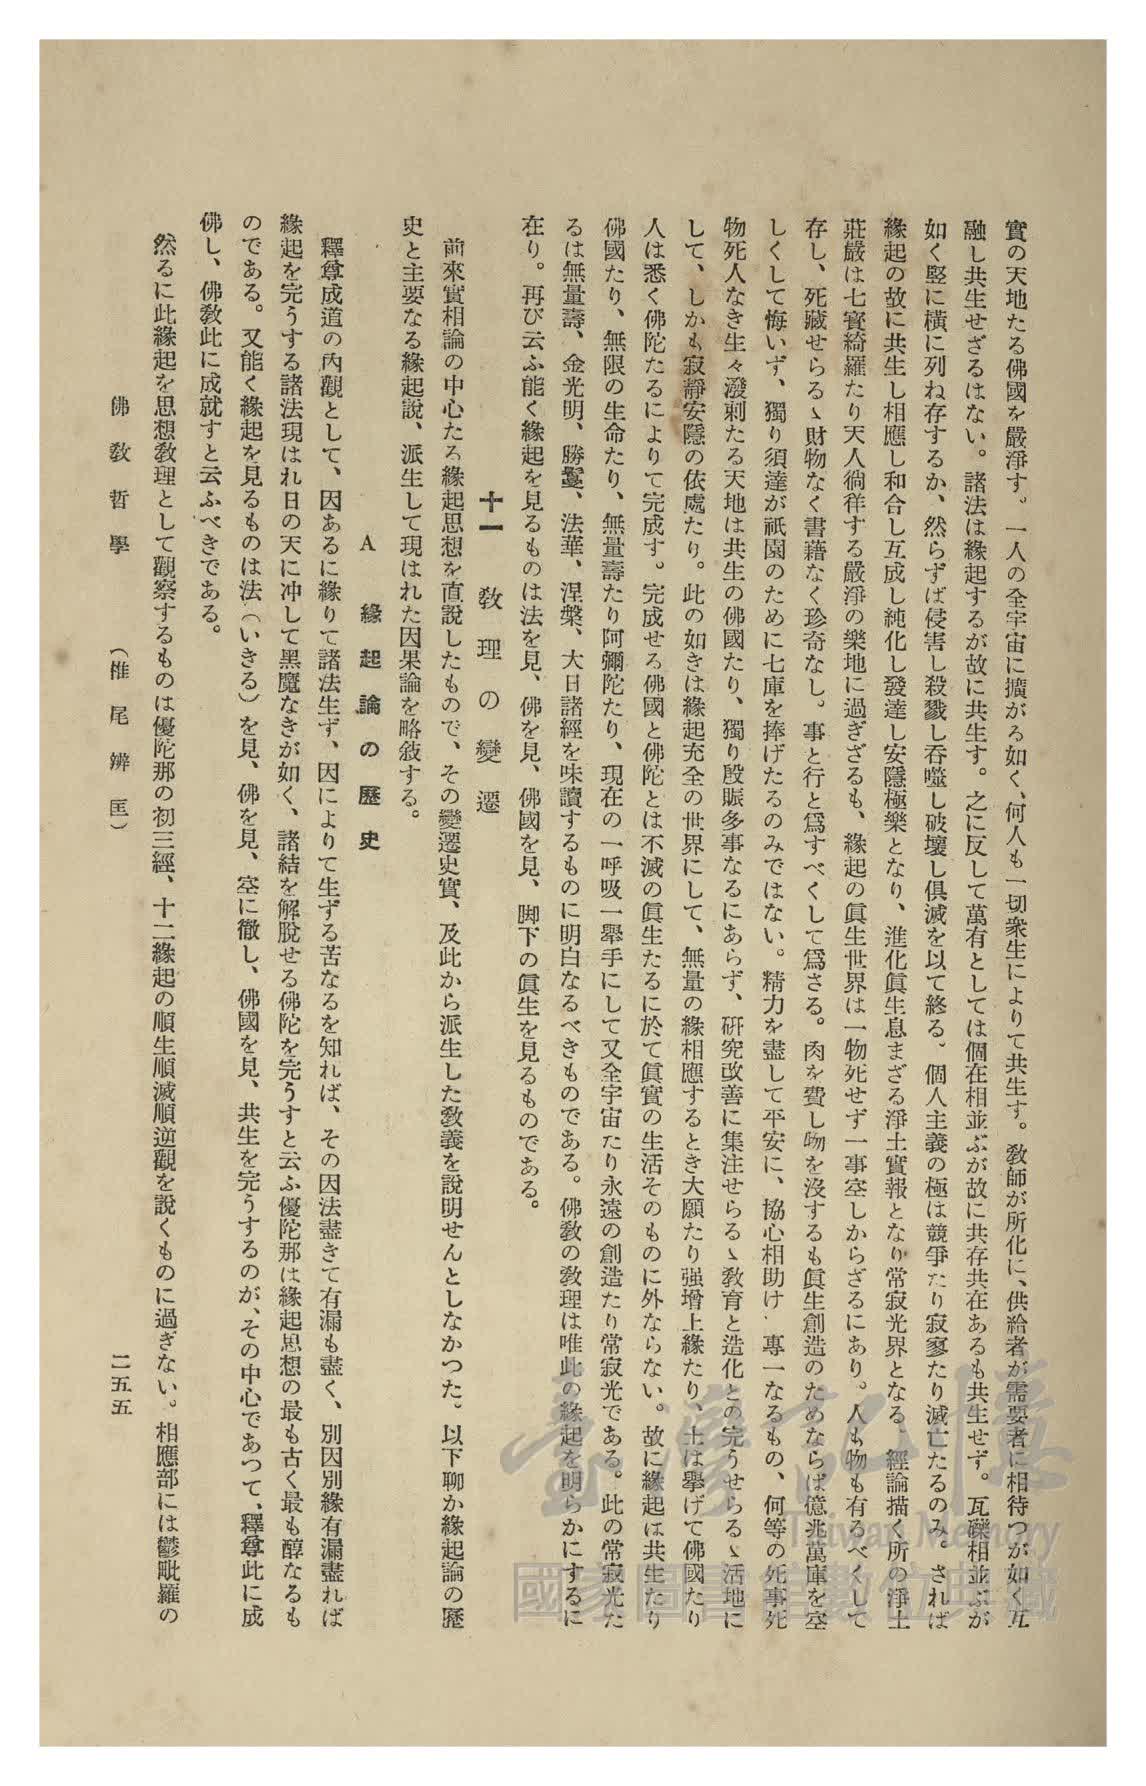 實の天地たる佛國を嚴淨す。一人の全宇宙に擴がる如く、何人も一切衆生によりて共生す。敎師が所化に、供給者が需要者に相待つが如く互
融し共生せざるはない。諸法は緣起するが故に共生す。之に反して萬有としては個在相並ぶが故に共存共在あるも共生せず。瓦礫相並ぶが
如く竪に橫に列ね存するか、然らずば侵害し殺戮し吞噬し破壞し俱滅を以て終る。個人主義の極は競爭たり寂寥たり滅亡たるのみ。されば
緣起の故に共生し相應し和合し互成し純化し發達し安隱極樂となり、進化眞生息まざる淨土實報となり常寂光界となる。經論描く所の淨土
莊嚴は七寳綺羅たり天人徜徉する嚴淨の樂地に過ぎざるも、緣起の眞生世界は一物死せず一事空しからざるにあり。人も物も有るべくして
存し、死藏せらるゝ財物なく書藉なく珍奇なし。事と行と爲すべくして爲さる。肉を費し物を沒するも眞生創造のためならば億兆萬庫を空
しくして悔いず、獨り須達が祇園のために七庫を捧げたるのみではない。精力を盡して平安に、協心相助け、專一なるもの、何等の死事死
物死人なき生々潑剌たる天地は共生の佛國たり、獨り殷賑多事なるにあらず、硏究改善に集注せらるゝ敎育と造化との完うせらるゝ活地に
して、しかも寂靜安隱の依處たり。此の如きは緣起充全の世界にして、無量の緣相應するとき大願たり强增上緣たり、土は擧げて佛國たり
人は悉く佛陀たるによりて完成す。完成せる佛國と佛陀とは不滅の眞生たるに於て眞實の生活そのものに外ならない。故に緣起は共生たり
佛國たり、無限の生命たり、無量壽たり阿彌陀たり、現在の一呼吸一擧手にして又全宇宙たり永遠の創造たり常寂光である。此の常寂光た
るは無量壽、金光明、勝鬘、法華、涅槃、大日諸經を味讀するものに明白なるべきものである。佛敎の敎理は唯此の緣起を明らかにするに
在り。再び云ふ能く緣起を見るものは法を見、佛を見、佛國を見、脚下の眞生を見るものである。
十一 敎理の變遷
前來實相論の中心たる緣起思想を直說したもので、その變遷史實、及此から派生した敎義を說明せんとしなかつた。以下聊か緣起論の歷
史と主要なる緣起說、派生して現はれた因果論を略敍する。
A 緣起論の歷史
釋尊成道の內觀として、因あるに緣りて諸法生ず、因によりて生ずる苦なるを知れば、その因法盡きて有漏も盡く、別因別緣有漏盡れば
緣起を完うする諸法現はれ日の天に冲して黑魔なきが如く、諸結を解脫せる佛陀を完うすと云ふ優陀那は緣起思想の最も古く最も醇なるも
のである。又能く緣起を見るものは法(いきる)を見、佛を見、空に徹し、佛國を見、共生を完うするのが、その中心であつて、釋尊此に成
佛し、佛敎此に成就すと云ふべきである。
然るに此緣起を思想敎理として觀察するものは優陀那の初三經、十二緣起の順生順滅順逆觀を說くものに過ぎない。相應部には鬱毗羅の
佛敎哲學 (椎尾辨匡) 二五五
臺灣記憶
Taiwan Memory
國家圖書館數位典藏